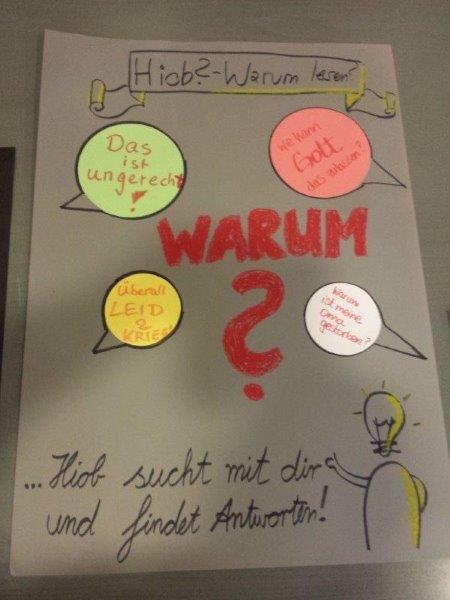 Hiob?-Warum lesen?
Das
ist
ungerecht
!
Wie kann
Gott
das zulassen?
WARUM
?
Überall
LEID
&
KRIEG!
Warum
ist meine
Oma
gestorben?
...Hiob sucht mit dir
und findet Antworten!